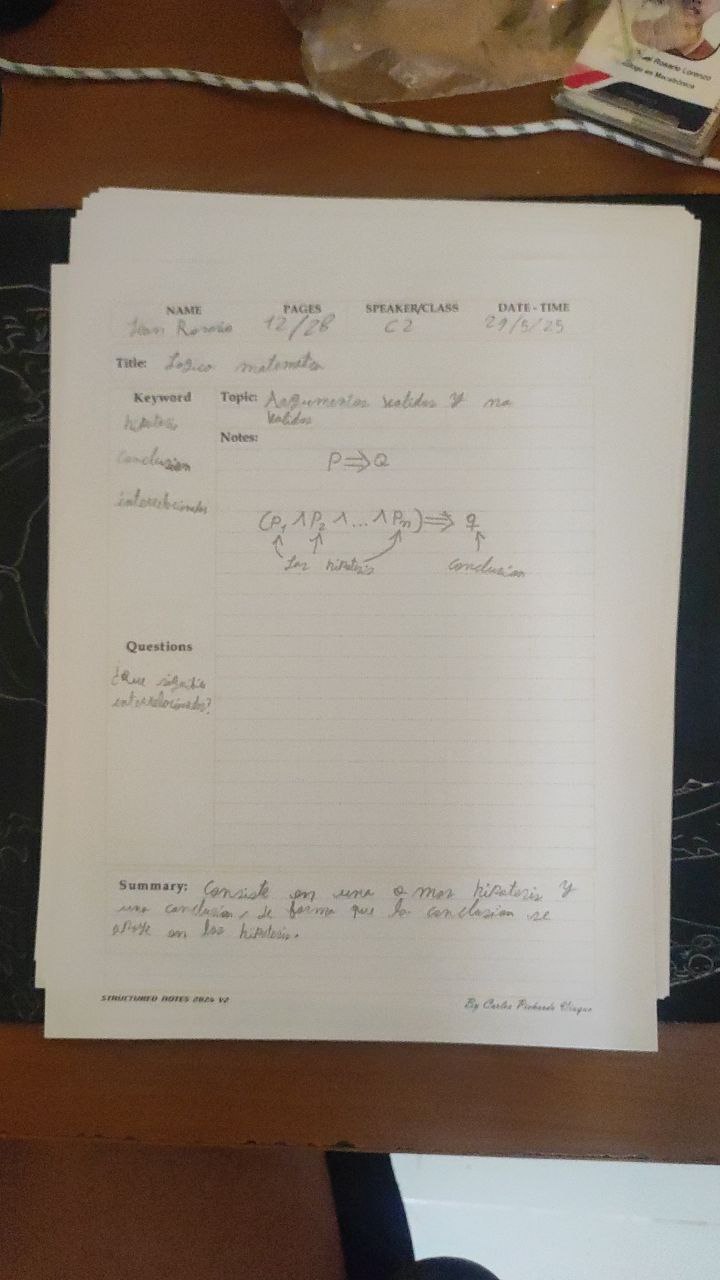 Rosario Lorenzo
en Mecatrónica
NAME PAGES SPEAKER/CLASS DATE - TIME
Jean Rosario 12/28 C2 29/5/25
Title: Logico matematica
Keyword
hipotesis
conclusion
interrelacionados
Topic: Argumentos validos y no
validos
Notes:
P ⇒ Q
(P1 ∧ P2 ∧ ... ∧ Pn) ⇒ q
Las hipotesis conclusion
Questions
¿Que significa
interrelacionados?
Summary: Consiste en una o mas hipotesis y
una conclusion, de forma que la conclusion se
apoye en las hipotesis.
STRUCTURED NOTES 2024 V2
By Carlos Pichardo Viuque